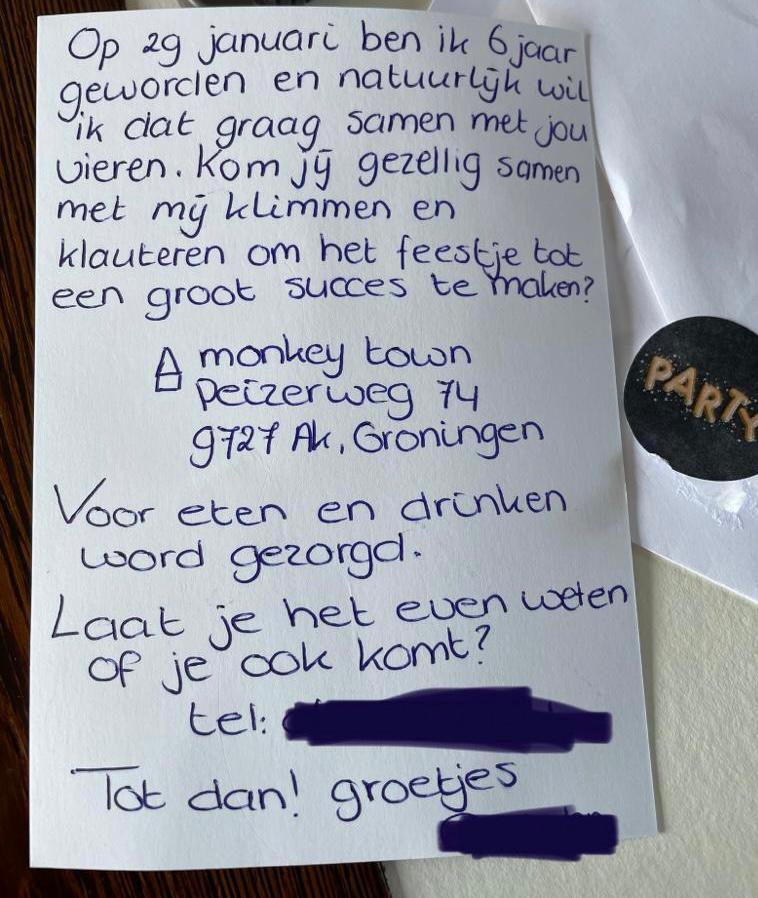 Op 29 januari ben ik 6 jaar
geworden en natuurlijk wil
ik dat graag samen met jou
vieren. Kom jij gezellig samen
met mij klimmen en
klauteren om het feestje tot
een groot succes te maken?
monkey town
Peizerweg 74
9727 AK, Groningen
Voor eten en drinken
word gezorgd.
Laat je het even weten
of je ook komt?
tel:
Tot dan! groetjes
PARTY